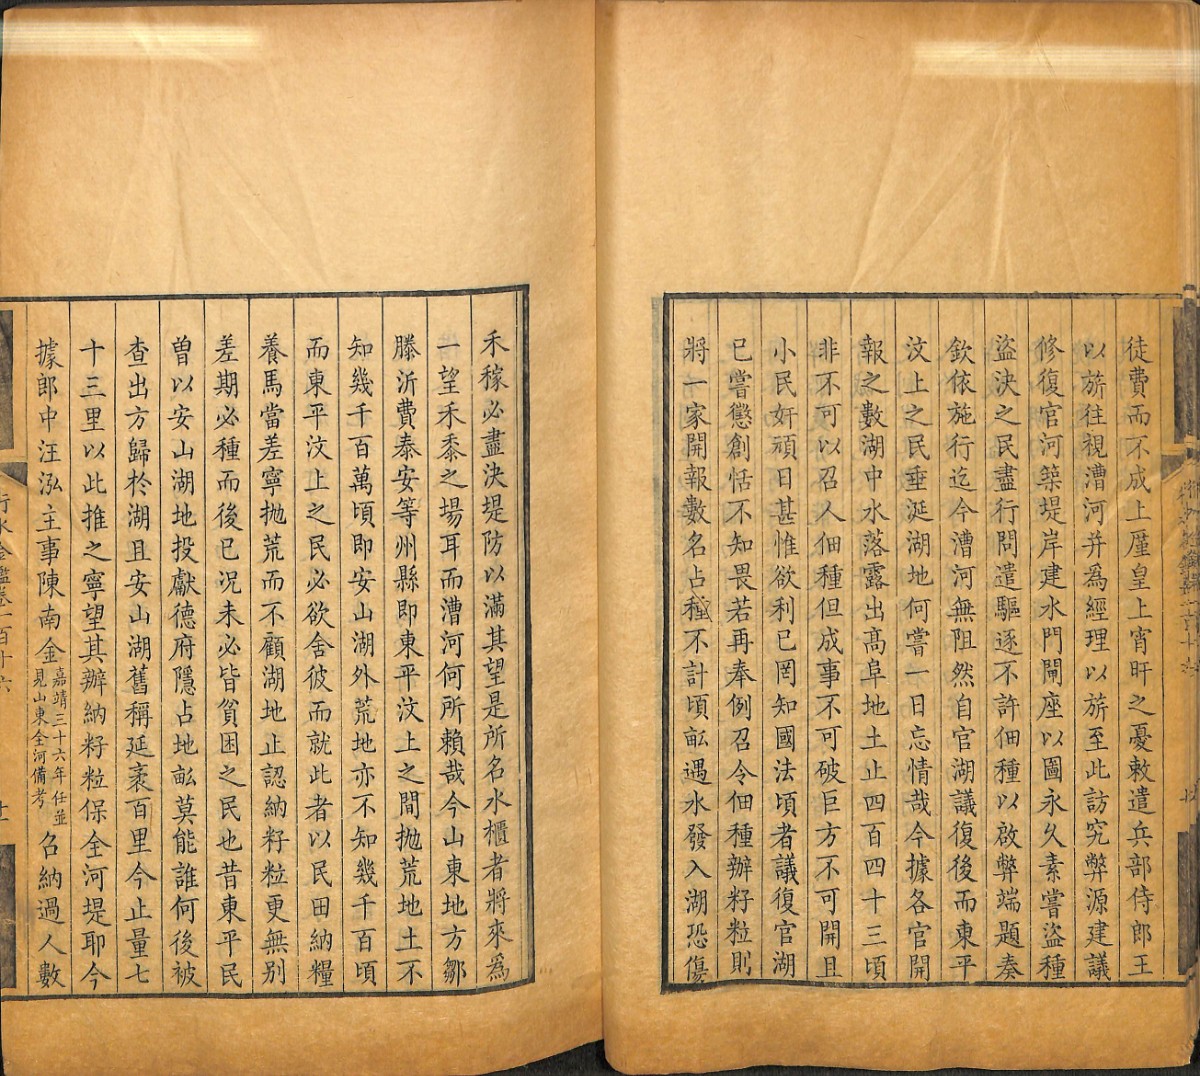 徒費而不成上厪皇上宵旰之憂敕遣兵部侍郎王
以旂往視漕河并爲經理以旂至此訪究弊源建議
修復官河築堤岸建水門閘座以圖永久素嘗盜種
盜決之民盡行問遣驅逐不許佃種以啟弊端題奏
欽依施行迄今漕河無阻然自官湖議復後而東平
汶上之民垂涎湖地何嘗一日忘情哉今據各官開
報之數湖中水落露出高阜地土止四百四十三頃
非不可以召人佃種但成事不可破巨方不可開且
小民奸頑日甚惟欲利已罔知國法頃者議復官湖
已嘗懲創恬不知畏若再奉例召令佃種辦籽粒則
將一家開報數名占種不計頃畝遇水發入湖恐傷
禾稼必盡決堤防以滿其望是所名水櫃者將來爲
一望禾黍之場耳而漕河何所賴哉今山東地方鄒
滕沂費泰安等州縣即東平汶上之間拋荒地土不
知幾千百萬頃即安山湖外荒地亦不知幾千百頃
而東平汶上之民必欲舍彼而就此者以民田納糧
養馬當差寧拋荒而不顧湖地止認納籽粒更無別
差期必種而後已况未必皆貧困之民也昔東平民
曽以安山湖地投獻德府隱占地畝莫能誰何後被
查出方歸於湖且安山湖舊稱延袤百里今止量七
十三里以此推之寧望其辦納籽粒保全河堤耶今
據郎中汪泓主事陳南金嘉靖三十六年任並見山東全河備考召納過人數
行水金鑑卷一百十六